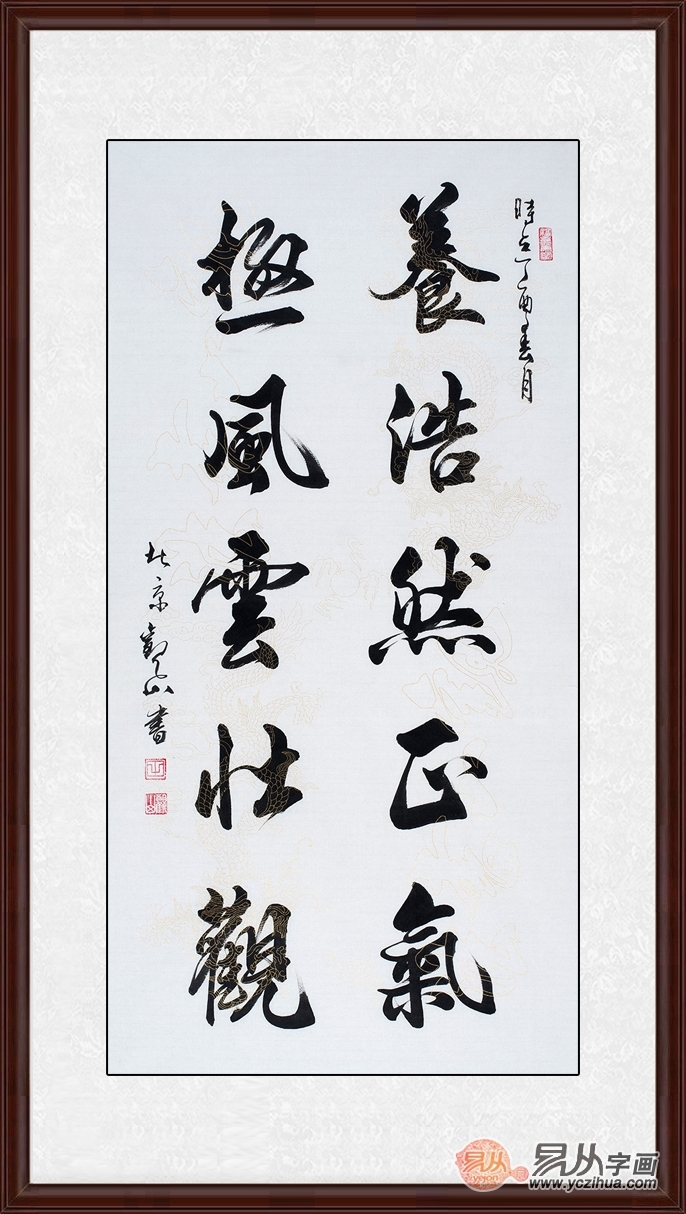 時在丁酉春月
養浩然正氣
極風雲壯觀
北京觀山書
易从
yycon
易从字画
www.yczihua.com